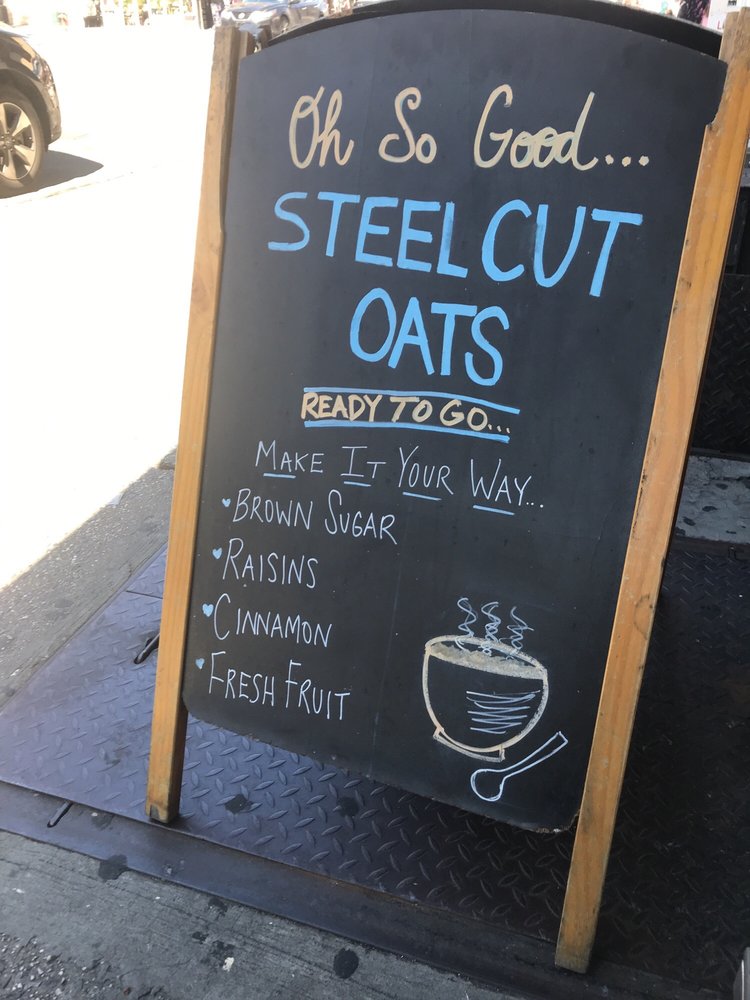 Oh So Good...
STEEL CUT
OATS
READY TO GO...
MAKE IT YOUR WAY...
BROWN SUGAR
RAISINS
CINNAMON
FRESH FRUIT